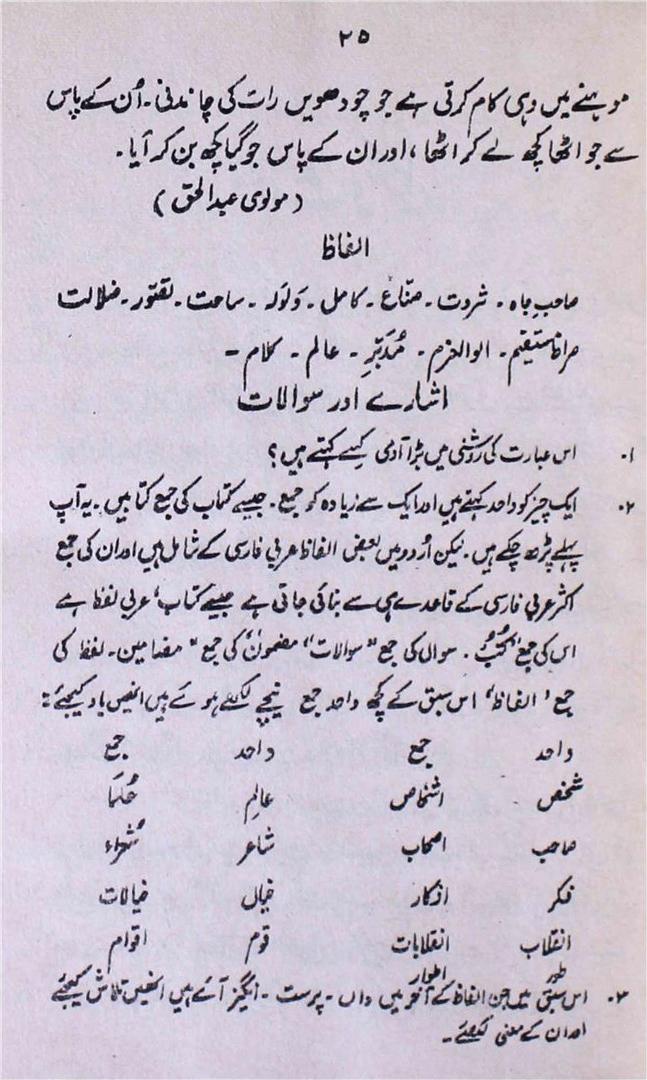 ۲۵
موہنے میں وہی کام کرتی ہے جو چودھویں رات کی چاندنی۔ اُن کے پاس
سے جو اٹھا کچھ لے کر اٹھا، اور ان کے پاس جو گیا کچھ بن کر آیا۔
(مولوی عبدالحق)
الفاظ
صاحبِ جاہ۔ ثروت۔ صنّاع۔ کامل۔ وَلوَلہ۔ ساحت۔ تصّور۔ ضلالت
صراطِ مستقیم۔ الوالعزم۔ مُدَبِّر۔ عالم۔ کلام۔
اشارے اور سوالات
۱۔ اس عبارت کی روشنی میں بڑا آدمی کِسے کہتے ہیں؟
۲۔ ایک چیز کو واحد کہتے ہیں اور ایک سے زیادہ کو جمع۔ جیسے کتاب کی جمع کتابیں۔ یہ آپ
پہلے پڑھ چکے ہیں۔ لیکن اُردو میں بعض الفاظ عربی فارسی کے شامل ہیں اور ان کی جمع
اکثر عربی فارسی کے قاعدے ہی سے بنائی جاتی ہے جیسے کتاب، عربی لفظ ہے
اس کی جمع "کُتُبْ"۔ سوال کی جمع "سوالات" مضمون کی جمع "مضامین۔ لفظ کی
جمع ' الفاظ' اس سبق کے کچھ واحد جمع نیچے لکھے ہوئے ہیں انھیں یاد کیجئے:
واحد جمع واحد جمع
شخص اشخاص عالِم عُلَمَا
صاحب اصحاب شاعر شُعْراء
فکر افکار خیال خیالات
انقلاب انقلابات قوم اقوام
طور اطوار
۳۔ اس سبق میں جن الفاظ کے آخر میں داں۔ پرست۔ انگیز آئے ہیں انھیں تلاش کیجئے
اور ان کے معنی لکھئے۔